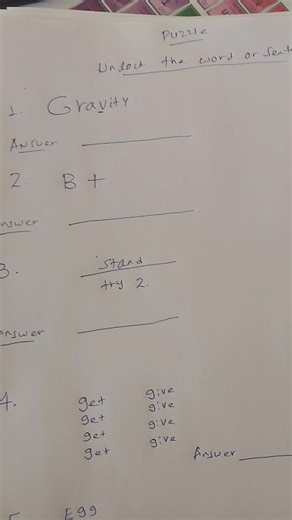 Puzzle
Unlock the word or sent
1. Gravity
Answer
2. B +
nswer
3. stand
try 2.
Answer
4. get give
get give
get give
get give
Answer
5. Egg